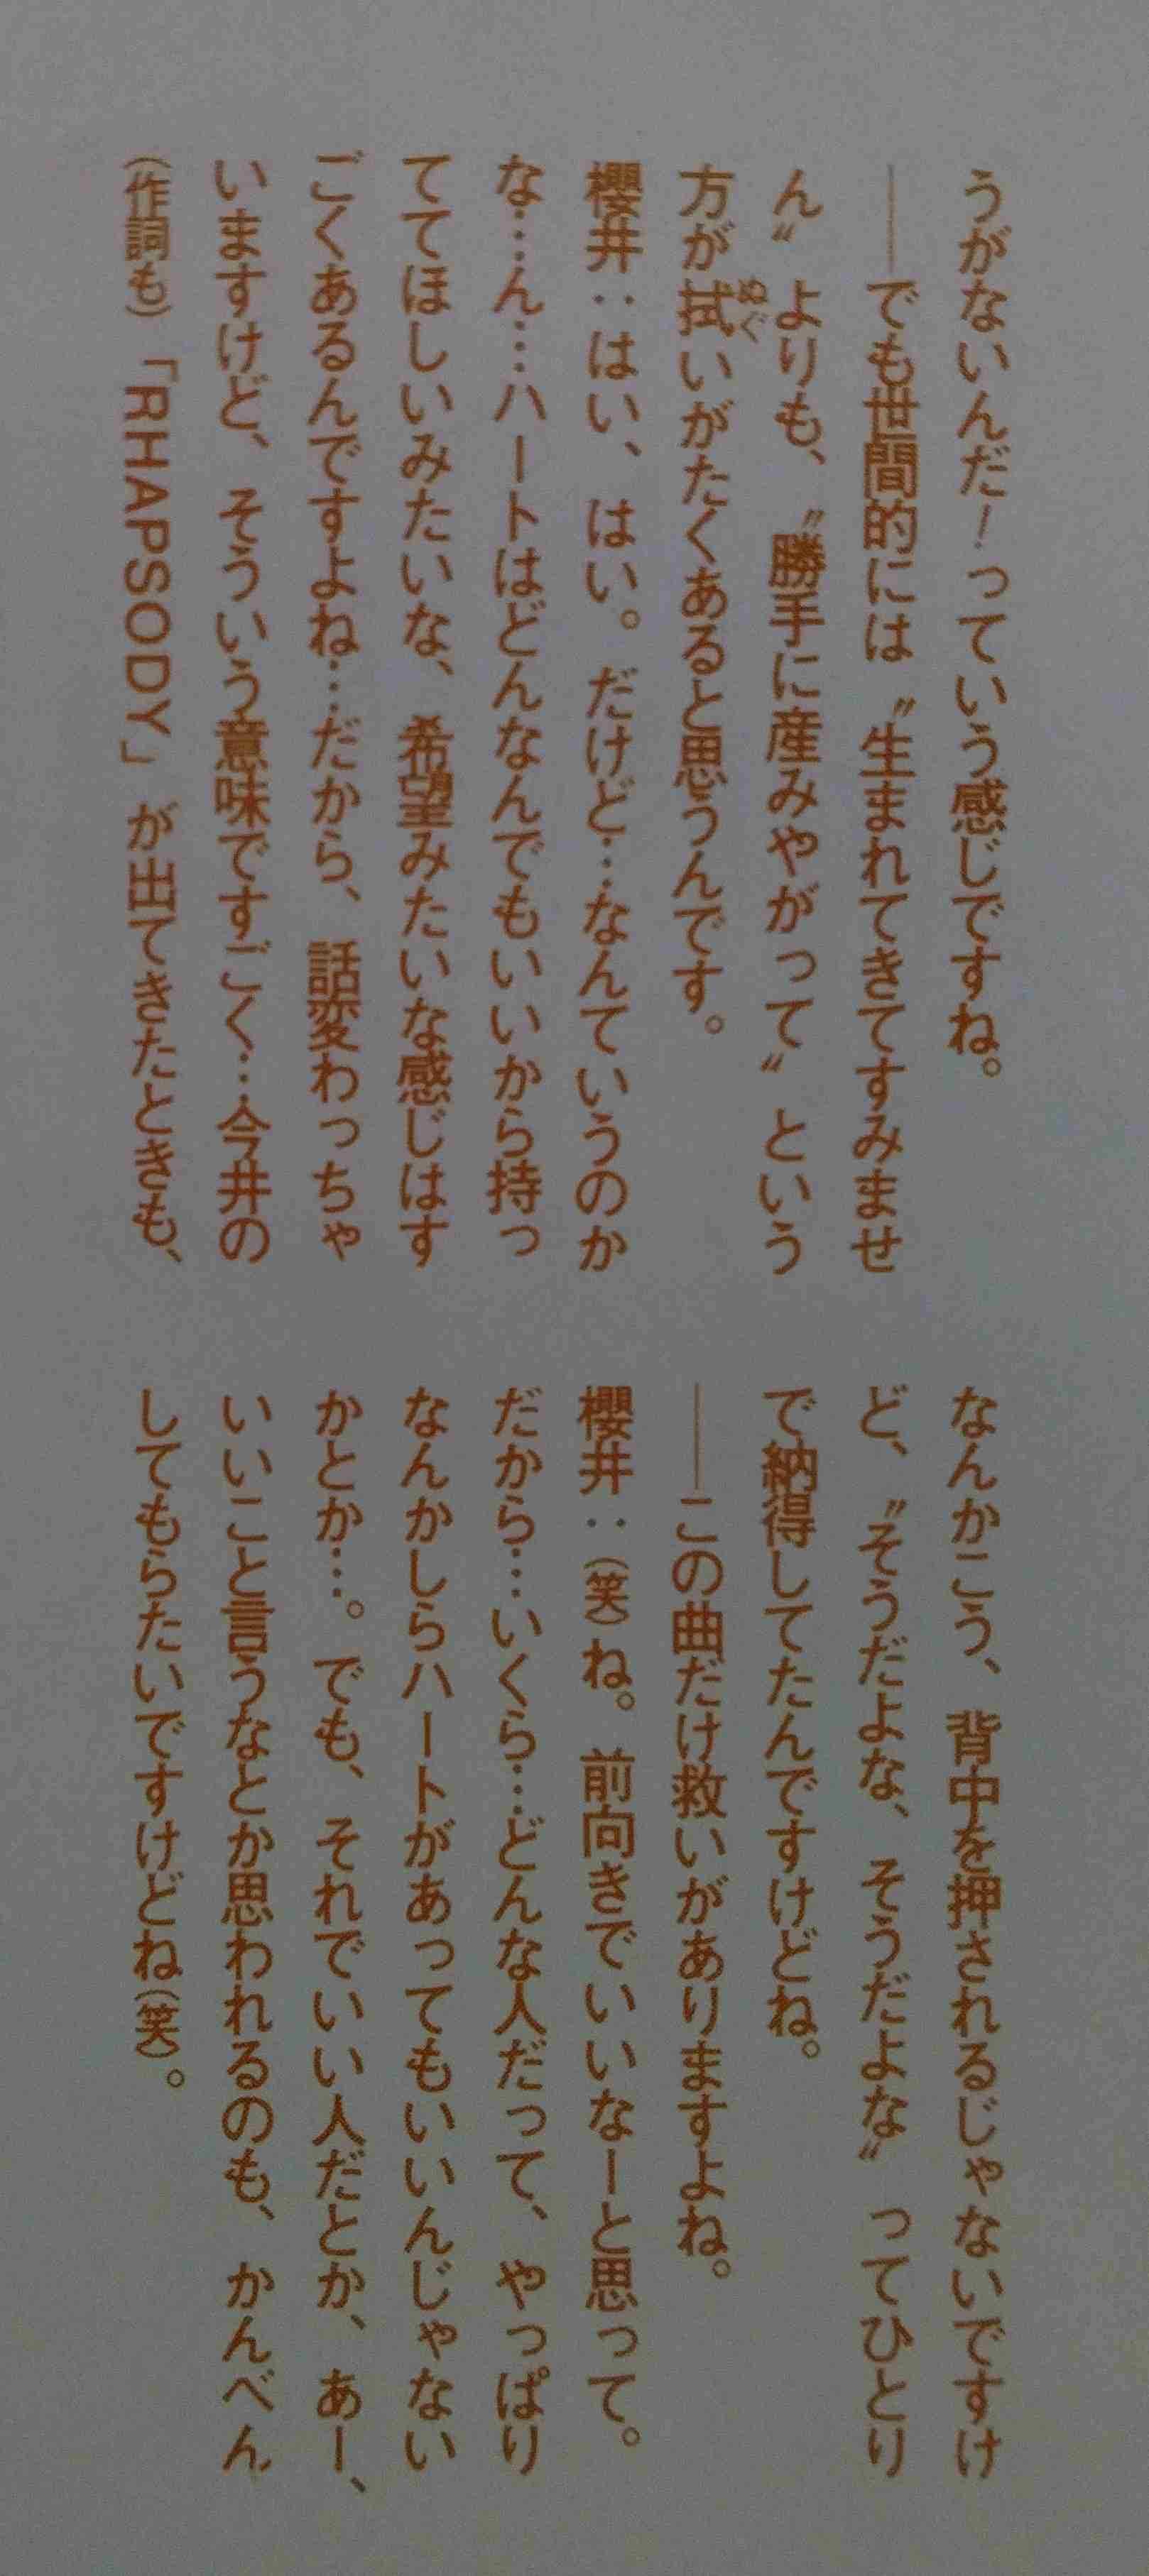 うがないんだ!っていう感じですね。
――でも世間的には〝生まれてきてすみませ
ん〟よりも、〝勝手に産みやがって〟という
方が拭いがたくあると思うんです。
ぬぐ
櫻井:はい、はい。だけど…なんていうのか
な…ん…ハートはどんなんでもいいから持っ
ててほしいみたいな、希望みたいな感じはす
ごくあるんですよね…だから、話変わっちゃ
いますけど、そういう意味ですごく…今井の
(作詞も)「RHAPSODY」が出てきたときも、
なんかこう、背中を押されるじゃないですけ
ど、〝そうだよな、そうだよな〟ってひとり
で納得してたんですけどね。
――この曲だけ救いがありますよね。
櫻井:(笑)ね。前向きでいいなーと思って。
だから…いくら…どんな人だって、やっぱり
なんかしらハートがあってもいいんじゃない
かとか…。でも、それでいい人だとか、あー、
いいこと言うなとか思われるのも、かんべん
してもらたいですけどね(笑)。